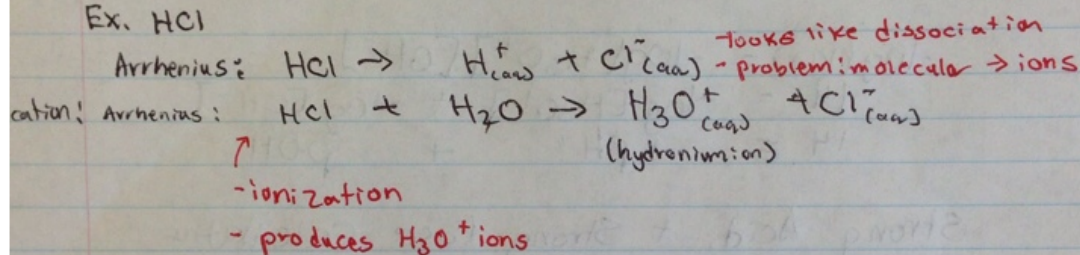 Ex. HCl
Arrhenius: HCl → H⁺(aq) + Cl⁻(aq) - looks like dissociation
- problem: molecular → ions
cation: Arrhenius: HCl + H₂O → H₃O⁺(aq) + Cl⁻(aq)
(hydronium ion)
↑
- ionization
- produces H₃O⁺ ions